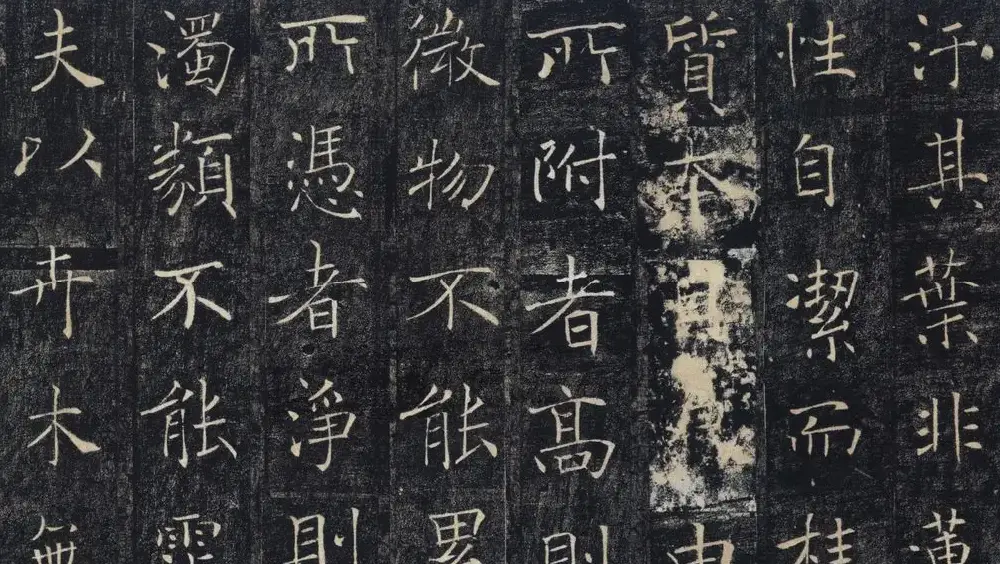 汙其葉非蓮
性自潔而桂
質本由
所附者髙則
微物不能累
所憑者淨則
濁類不能霑
夫以卉木無